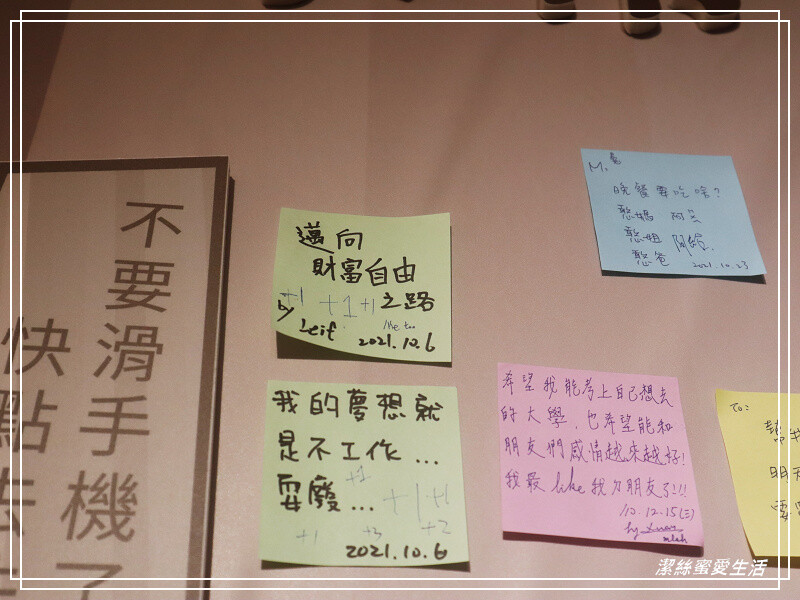 不要滑手機
快點去
邁向
財富自由
+1 +1 +1 之路
by Leif
Me too
2021.10.6
我的夢想就
是不工作...
耍廢...
+1
+1 +1
+1 +3 +2
2021.10.6
M.
晚餐要吃啥?
憨媽
憨姐
憨爸
2021.10.23
希望我能考上自己想去
的大學,也希望能和
朋友們感情越來越好!
我最like我ㄉ朋友了!!!
10.12.15(三)
by
To:
幫我
明天
潔絲蜜愛生活